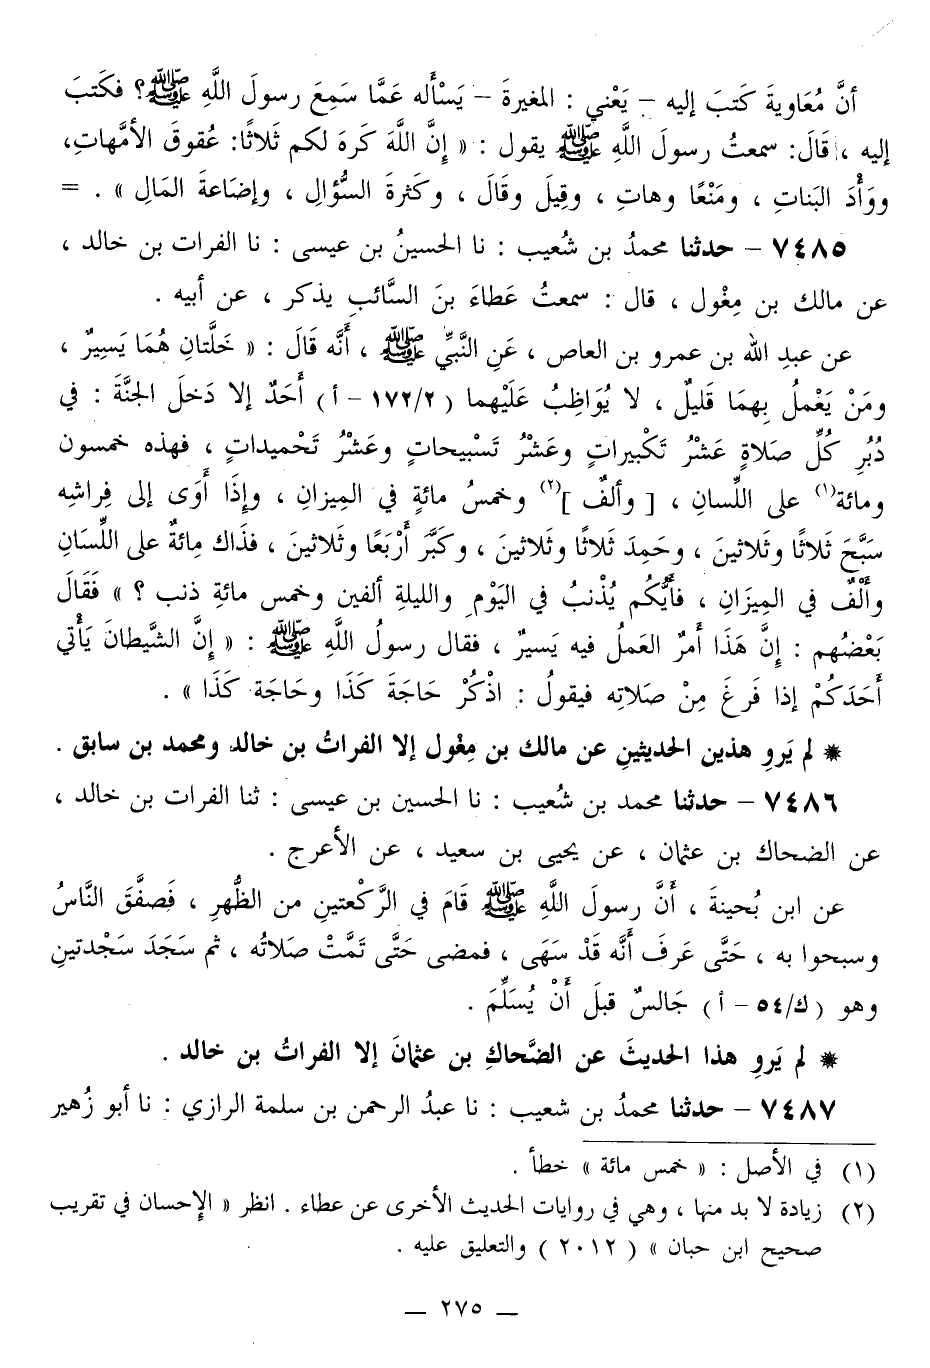 أنَّ مُعَاويةَ كَتبَ إليه – يَعْني : المغيرةَ – يَسْأَله عَمَّا سَمِعَ رسولَ اللَّهِ ﷺ؟ فكَتبَ
إليه ، قَالَ: سمعتُ رسولَ اللَّهِ ﷺ يقول : « إِنَّ اللَّهَ كَرهَ لكم ثَلاثًا: عُقوقَ الأمَّهاتِ،
ووَأْدَ البَناتِ ، ومَنْعًا وهاتِ ، وقِيلَ وقَالَ ، وكَثرةَ السُّؤالِ ، وإضَاعةَ المَالِ » . =
٧٤٨٥ – حدثنا محمدُ بن شُعيب : نا الحسينُ بن عيسى : نا الفرات بن خالد ،
عن مالك بن مِغْول ، قال : سمعتُ عَطاءَ بنَ السَّائبِ يذكر ، عن أبيه .
عن عبدِ الله بن عمرو بن العاص ، عَنِ النَّبيِّ ﷺ ، أَنَّه قَالَ : « خَلَّتانِ هُمَا يَسِيرٌ ،
ومَنْ يَعْملُ بِهمَا قَليلٌ ، لا يُوَاظِبُ عَلَيْهما (١٧٢/٢ – أ) أَحَدٌ إلا دَخلَ الجَنَّةَ : في
دُبُرِ كُلِّ صَلاةٍ عَشْرُ تَكْبيراتٍ وعَشْرُ تَسْبيحاتٍ وعَشْرُ تَحْميداتٍ ، فهذه خمسون
ومائة(١) على اللِّسانِ ، [ وألفٌ ](٢) وخمسُ مائةٍ في المِيزانِ ، وإِذَا أَوَى إلى فِراشِه
سَبَّحَ ثَلاثًا وثَلاثينَ ، وحَمِدَ ثَلاثًا وثلاثينَ ، وكَبَّرَ أَرْبَعًا وثَلاثينَ ، فذَاك مِائةٌ على اللِّسَانِ
وأَلْفٌ في المِيزَانِ ، فأَيُّكُم يُذْنبُ في اليَوْمِ والليلةِ ألفين وخمس مائةِ ذنب ؟ » فَقَالَ
بَعْضُهم : إِنَّ هَذَا أمرٌ العَملُ فيه يَسيرٌ ، فقال رسولُ اللَّهِ ﷺ : « إِنَّ الشَّيطانَ يَأْتي
أَحَدَكُمْ إذا فَرغَ مِنْ صَلاتِه فيقولُ : اذْكُرْ حَاجَةَ كَذَا وحَاجَة كَذَا » .
* لم يَروِ هذين الحديثينِ عن مالك بن مِغْول إلا الفراتُ بن خالد ومحمد بن سابق .
٧٤٨٦ – حدثنا محمد بن شُعيب : نا الحسين بن عيسى : ثنا الفرات بن خالد ،
عن الضحاك بن عثمان ، عن يحيى بن سعيد ، عن الأعرج .
عن ابن بُحينةَ ، أَنَّ رسولَ اللَّهِ ﷺ قَامَ في الرَّكْعتينِ من الظُّهرِ ، فَصفَّقَ النَّاسُ
وسبحوا به ، حَتَّى عَرفَ أَنَّه قَدْ سَهَى ، فمضى حَتَّى تَمَّتْ صَلاتُه ، ثم سَجَدَ سَجْدتينِ
وهو (ك/٥٤ – أ) جَالسٌ قبلَ أَنْ يُسَلِّمَ .
* لم يَروِ هذا الحديثَ عن الضَّحاكِ بن عثمانَ إلا الفراتُ بن خالد .
٧٤٨٧ – حدثنا محمدُ بن شعيب : نا عبدُ الرحمن بن سلمة الرازي : نا أبو زُهير
(١) في الأصل : « خمس مائة » خطأ .
(٢) زيادة لا بد منها ، وهي في روايات الحديث الأخرى عن عطاء . انظر « الإحسان في تقريب
صحيح ابن حبان » (٢٠١٢) والتعليق عليه .
— ٢٧٥ —